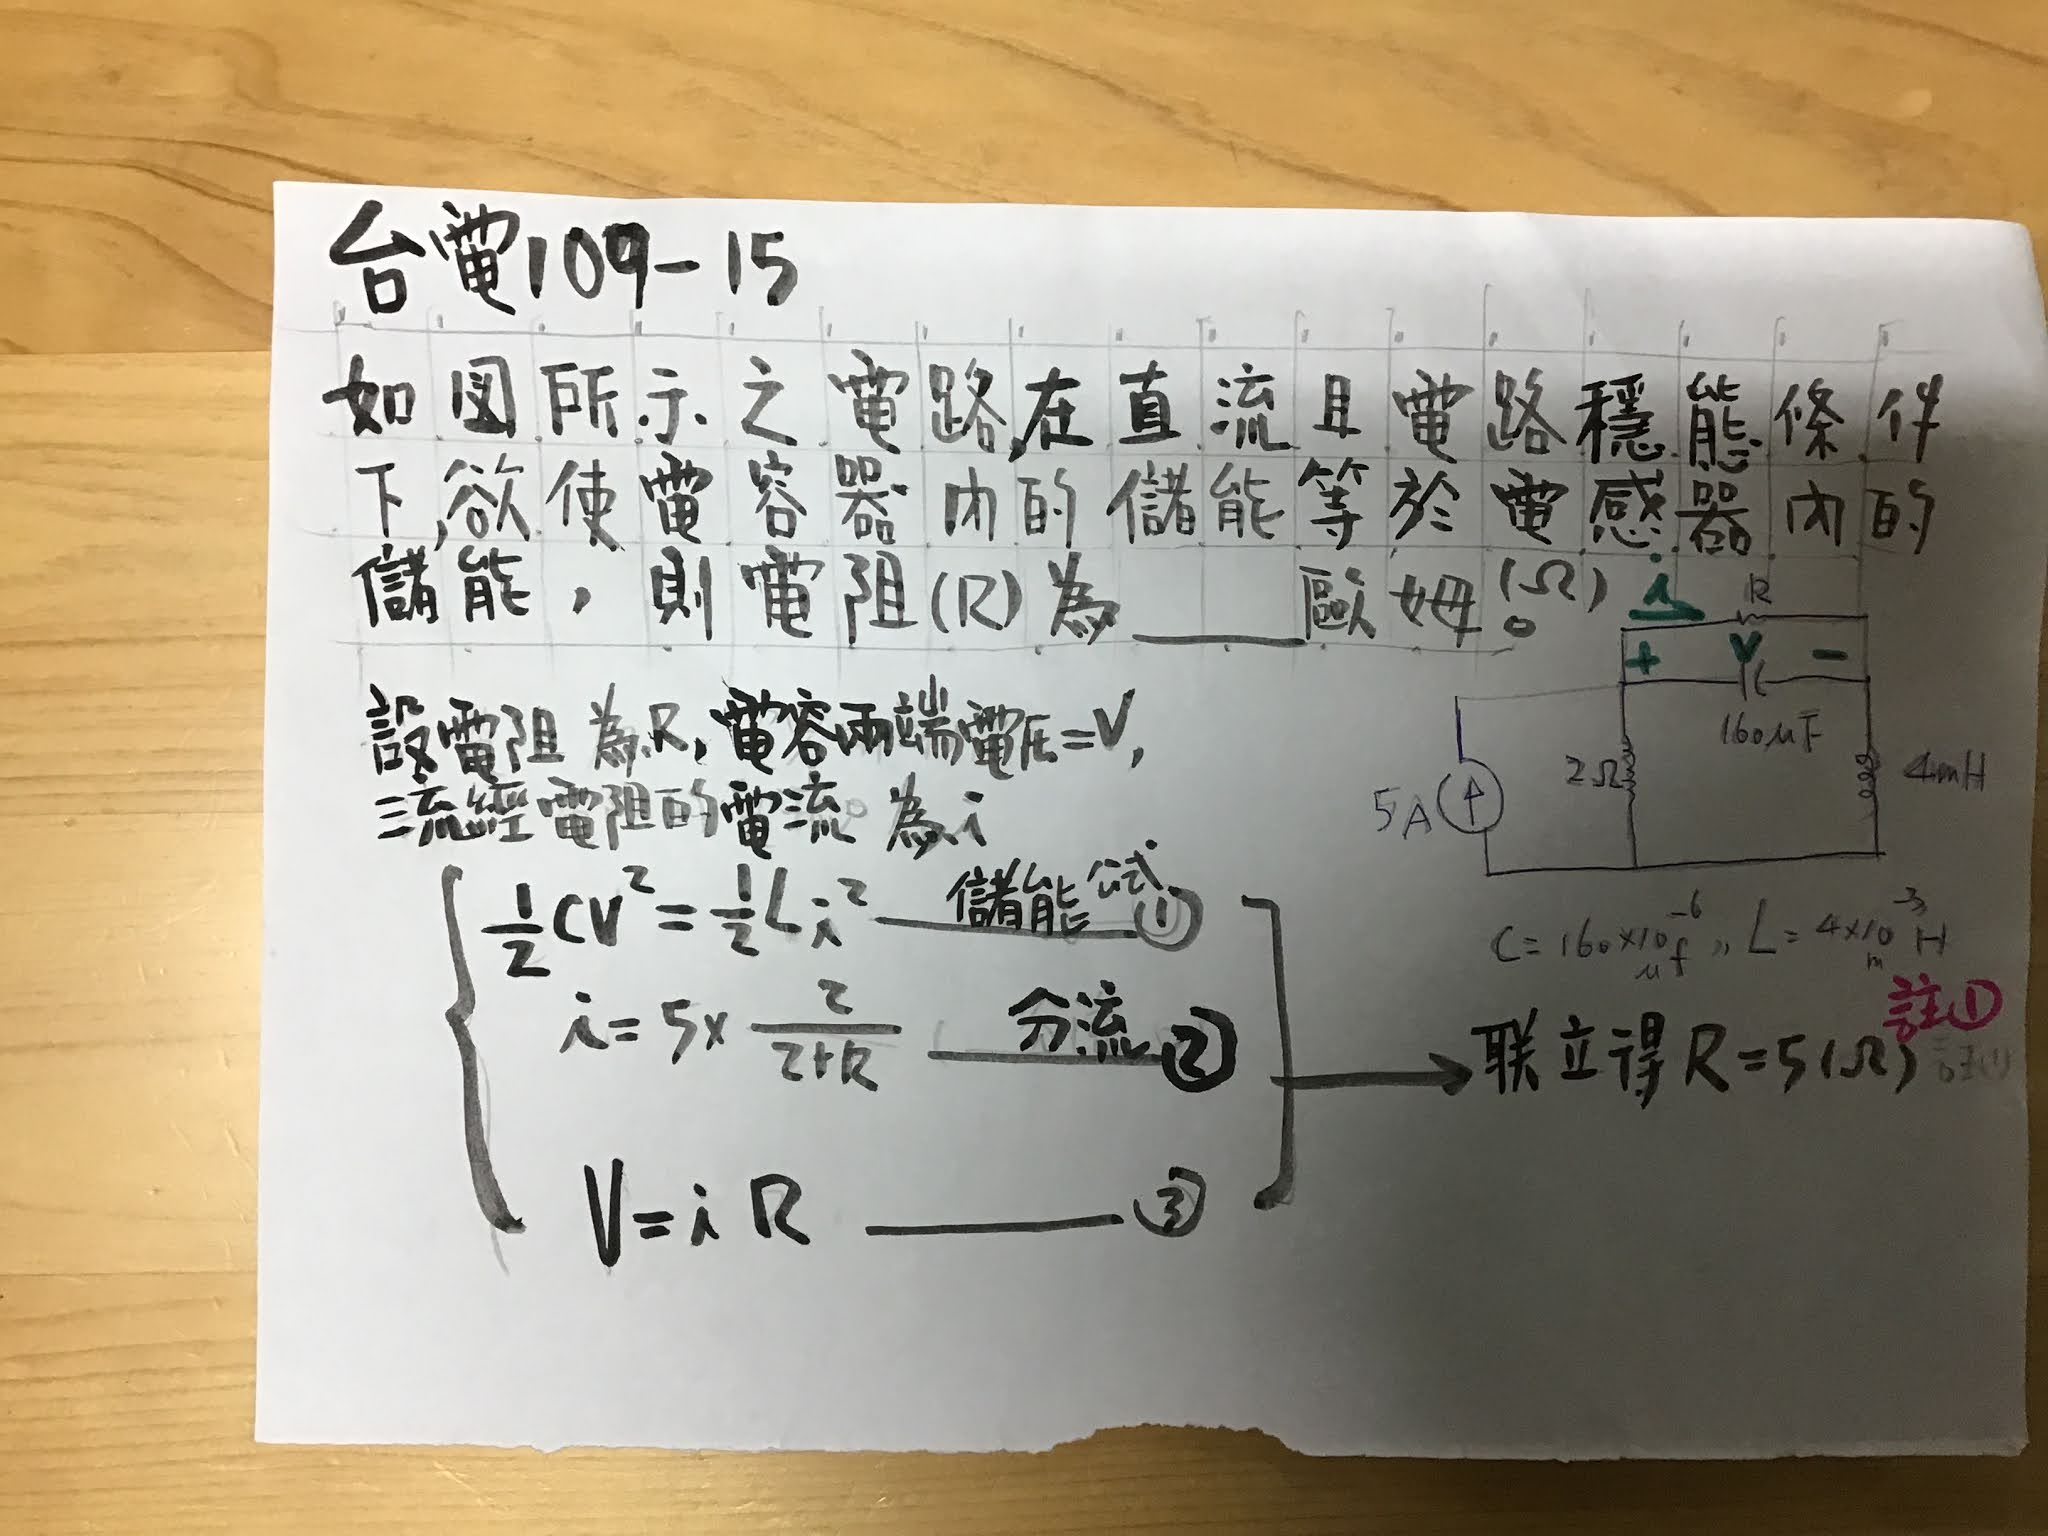 台電109-15
如図所示之電路,在直流且電路穩態條件
下,欲使電容器內的儲能等於電感器內的
儲能,則電阻(R)為____歐姆(Ω)。
i
R
+ V -
160μF
2Ω
4mH
5A
設電阻為R,電容兩端電压=V,
流經電阻的電流為i
1/2 CV² = 1/2 Li² 儲能公式 ①
C=160×10⁻⁶ f, L=4×10⁻³ H
μ m
i=5× 2/(2+R) 分流 ②
联立得R=5(Ω) 註①
V=iR ③